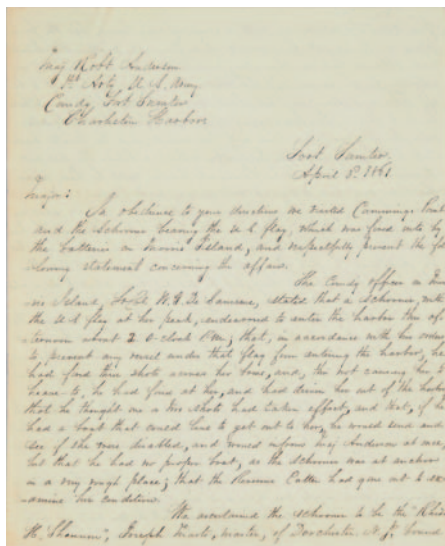 Maj Robt Anderson
1st Arty U. S. Army
Comdg Fort Sumter
Charleston Harbor
Fort Sumter
April 3d 1861
Major:
In obedience to your directions we visited Cummings Point
and the Schooner bearing the U S flag, which was fired into by
the batteries on Morris Island, and respectfully present the fol
lowing statement concerning the affair.
The Comdg officer on Mor
ris Island, W. De Saussure, stated that a Schooner, with
the U S flag at her peak, endeavored to enter the harbor this af
ternoon about 2 o-clock P.m; that, in accordance with his orders
to prevent any vessel under that flag from entering the harbor, he
had fired three shots across her bows, and, this not causing her to
heave to, he had fired at her, and had driven her out of the harbor
that he thought one or two shots had taken effect, and that, if he
had a boat that could live to get out to her, he would send and
see if she were disabled, and would inform Maj Anderson at once,
but that he had no proper boat, as the schooner was at anchor
in a very rough place; that the Revenue Cutter had gone out to ex
amine her condition.
We ascertained the schooner to be the "Rhoda
H. Shannon", Joseph Marts, master, of Dorchester N. J. bound